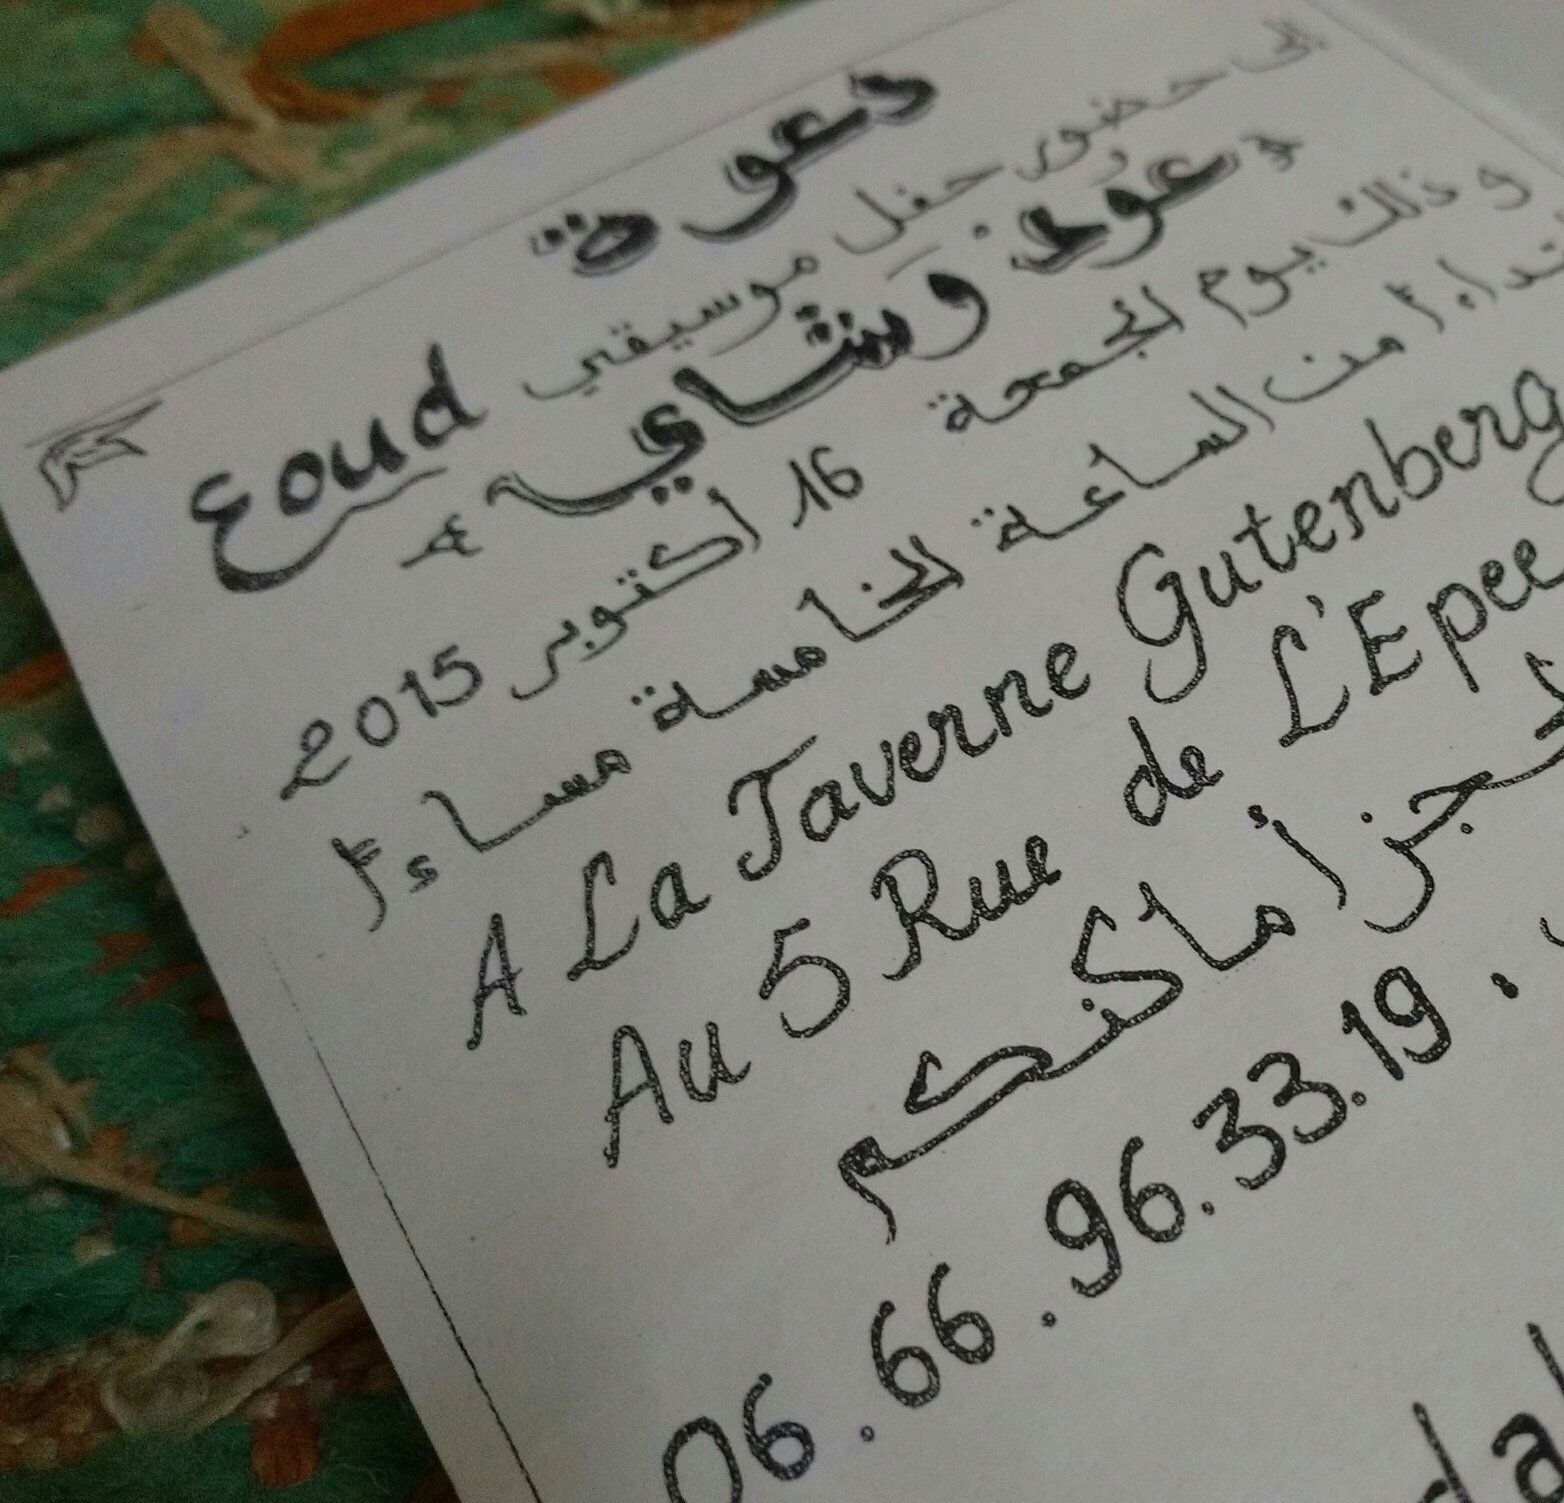 دعوة
إلى حضور حفل موسيقي Eoud
عُود وشاي
وذلك يوم الجمعة 16 أكتوبر 2015
من الساعة الخامسة مساءً
A La Taverne Gutenberg
Au 5 Rue de L'Epee
لحجز أماكنكم
06.66.96.33.19.